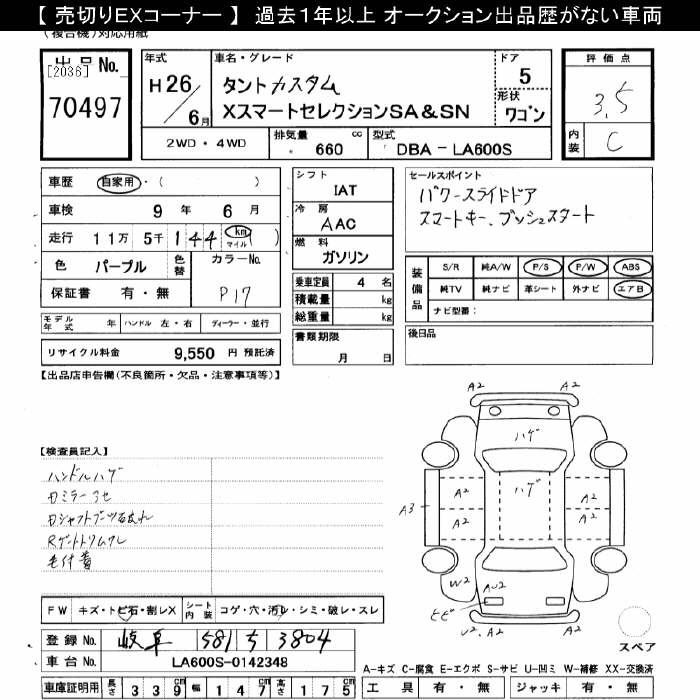 【 売切りEXコーナー 】 過去1年以上 オークション出品歴がない車両
(複合機)対応用紙
出品No.
[2036]
70497
年式
H26/6月
車名・グレード
タントカスタム
XスマートセレクションSA&SN
ドア
5
形状
ワゴン
2WD ・ 4WD
排気量
660 cc
型式
DBA - LA600S
評価点
3.5
内装
C
車歴 自家用 ・( )
車検 9 年 6 月
走行 11万 5千 144 km マイル ( )
色 パープル 色替
カラーNo.
P17
保証書 有 ・ 無
シフト
IAT
冷房
AAC
燃料
ガソリン
乗車定員 4 名
積載量 kg
総重量 kg
セールスポイント
パワースライドドア
スマートキー、プッシュスタート
装備品
S/R 純A/W P/S P/W ABS
純TV 純ナビ 革シート 外ナビ エアB
ナビ型番:
モデル年式 年 ハンドル 左・右 ディーラー・並行
リサイクル料金 9,550 円 預託済
書類期限
月 日
後日品
【出品店申告欄(不良箇所・欠品・注意事項等)】
A2 A2
ハゲ
A2 ハゲ A2
A3 A2 A2
W2 AU2
ヒビ
U2 A2 A2
スペア
【検査員記入】
ハンドルハゲ
毛付着
FW キズ・トビ石・割レX
シート内装 コゲ・穴・汚レ・シミ・破レ・スレ
登録No. 岐阜 581 ち 3804
車台No. LA600S-0142348
車庫証明用 長さ 339cm 幅 147cm 高さ 175cm
A-キズ C-腐食 E-エクボ S-サビ U-凹ミ W-補修 XX-交換済
工具 有 ・ 無 ジャッキ 有 ・ 無